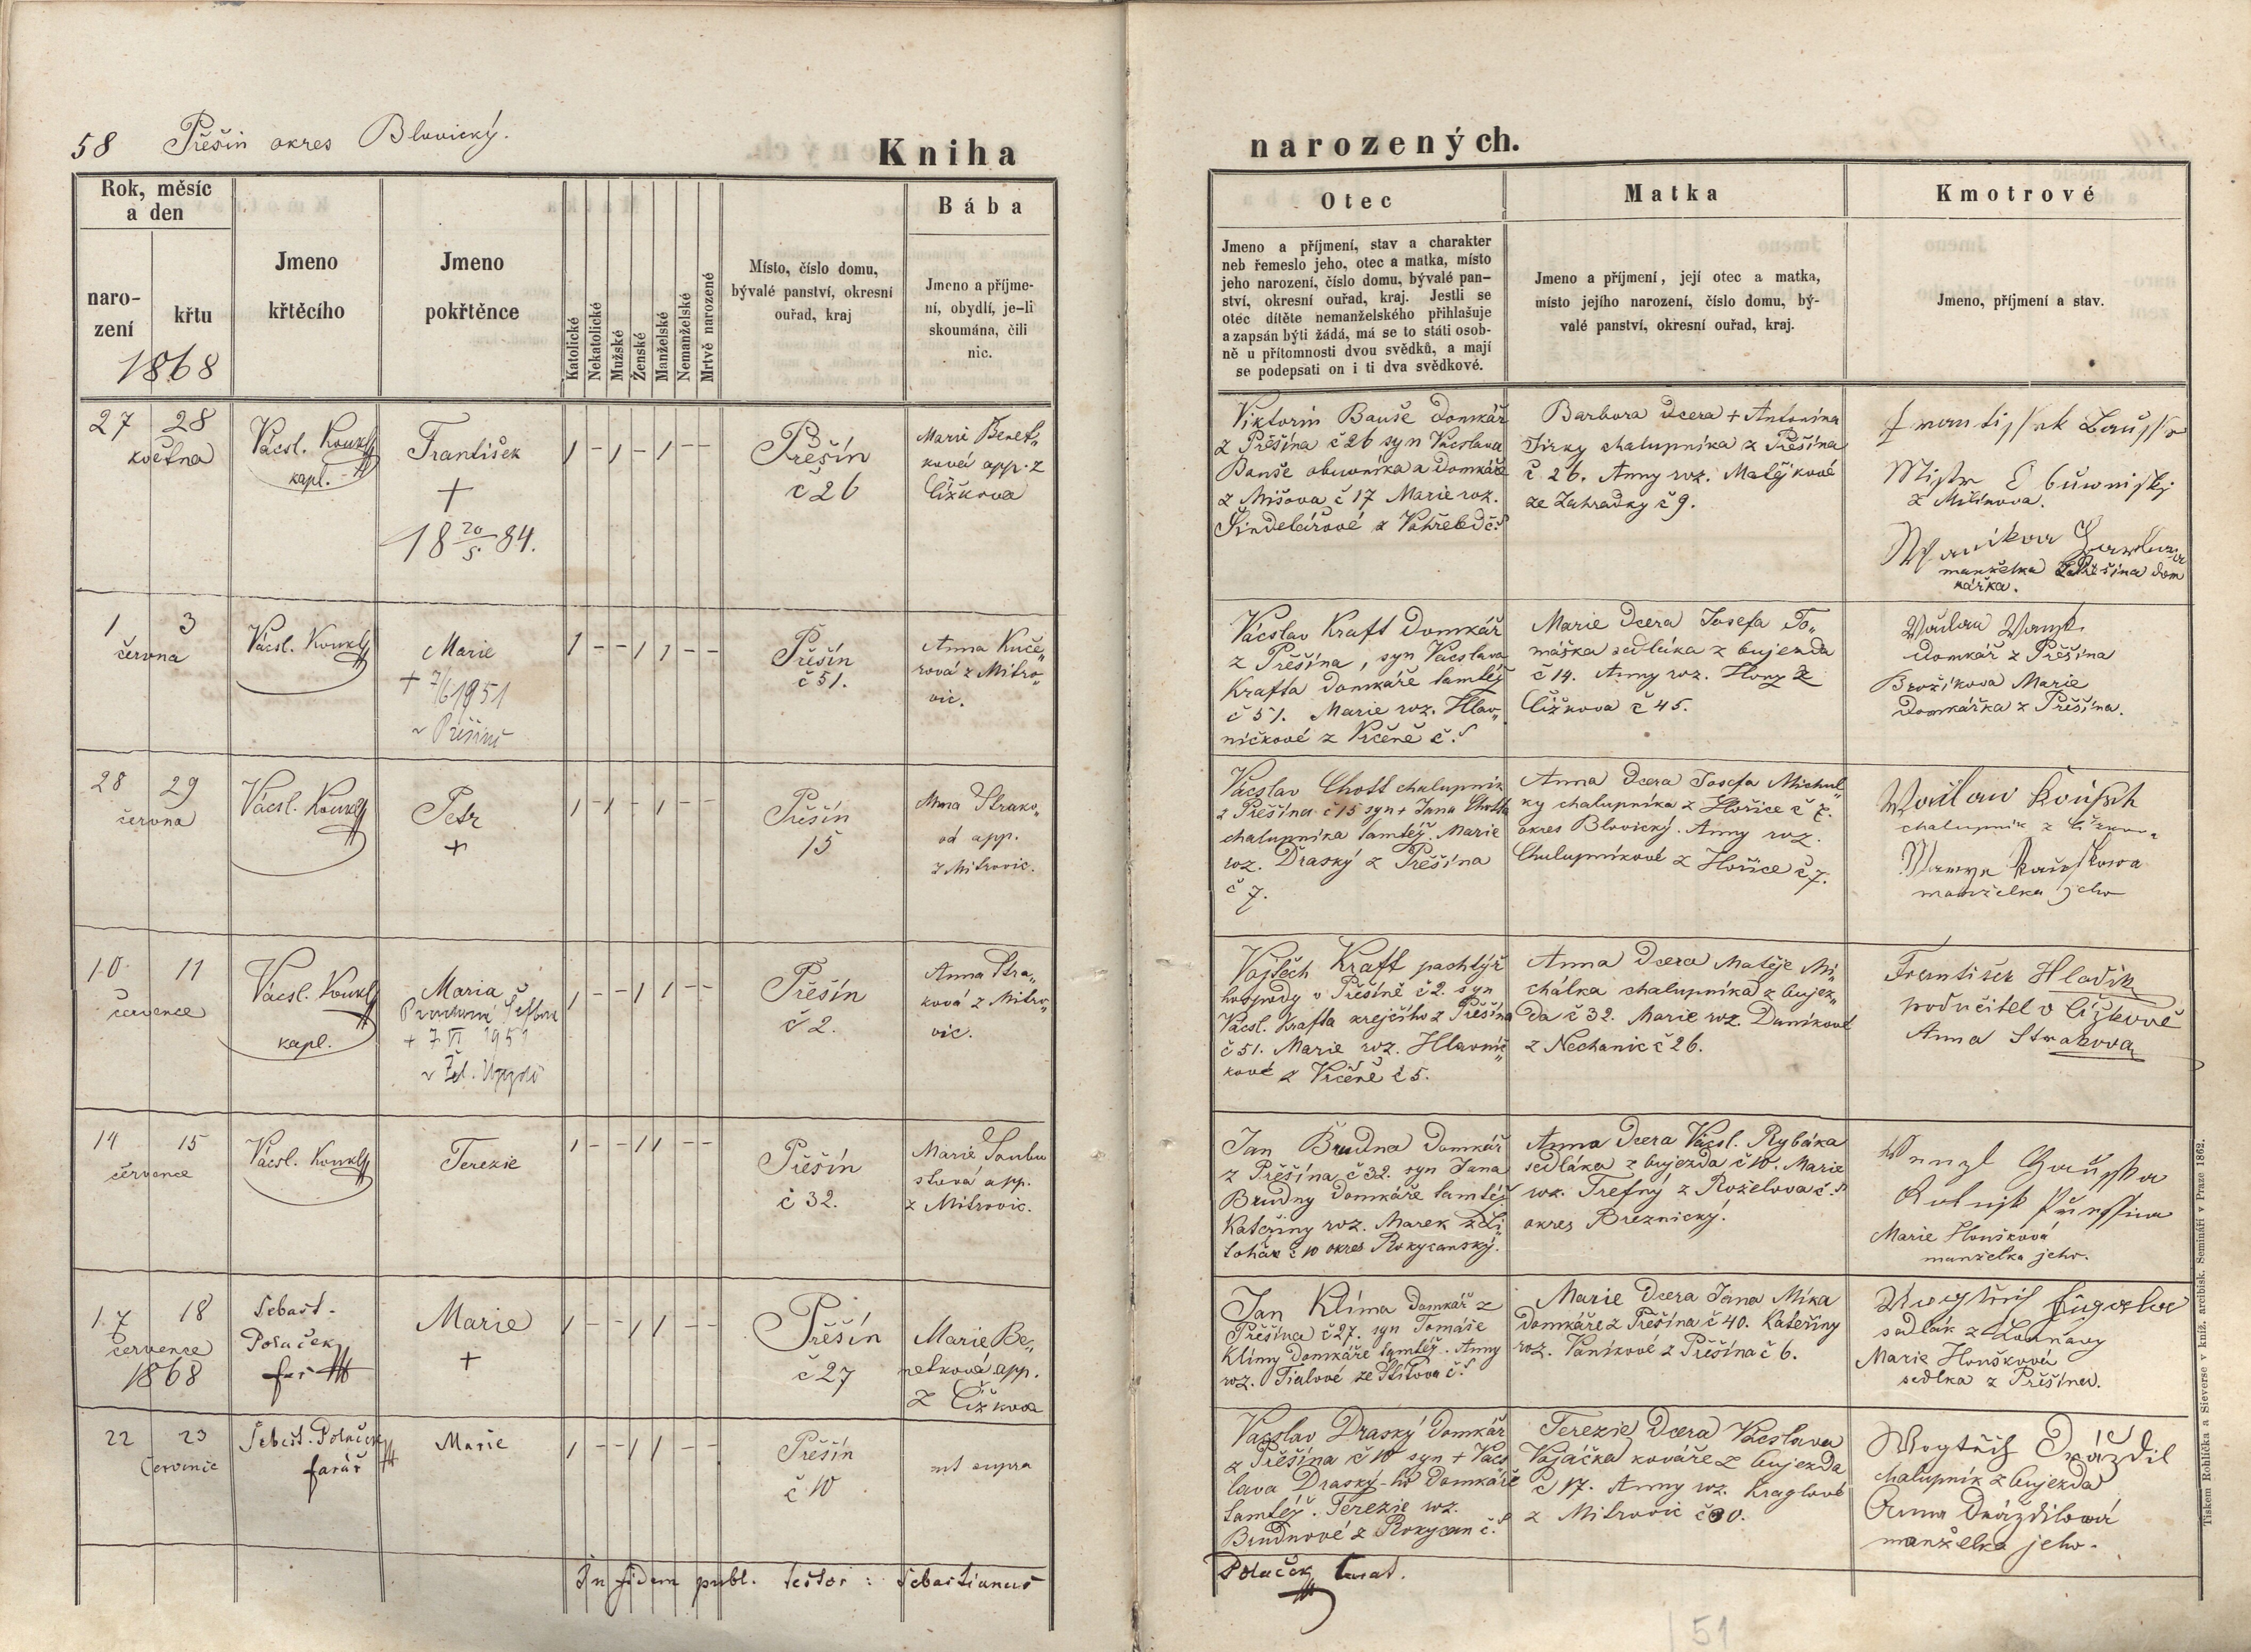 58 Přěšin okres Blovický.
Kniha
narozených.
Rok, měsíc
a den
naro-
zení
křtu
1868
Jmeno
křtěcího
Jmeno
pokřtěnce
Katolické
Nekatolické
Mužské
Ženské
Manželské
Nemanželské
Mrtvě narozené
Místo, číslo domu,
bývalé panství, okresní
ouřad, kraj
Bába
Jmeno a příjme-
ní, obydlí, je-li
skoumána, čili
nic.
Otec
Jmeno a příjmení, stav a charakter
neb řemeslo jeho, otec a matka, místo
jeho narození, číslo domu, bývalé pan-
ství, okresní ouřad, kraj. Jestli se
otec dítěte nemanželského přihlašuje
a zapsán býti žádá, má se to státi osob-
ně u přítomnosti dvou svědků, a mají
se podepsati on i ti dva svědkové.
Matka
Jmeno a příjmení, její otec a matka,
místo jejího narození, číslo domu, bý-
valé panství, okresní ouřad, kraj.
Kmotrové
Jmeno, příjmení a stav.
27 28
května
Vácsl. Koukl
kapl.
František
+
18 20/5 84.
1 - 1 - 1 - -
Přěšín
č 26
Marie Benet„
ková app. z
Čížkova
Viktorin Bauše Domkář
z Přěšína č 26 syn Vácslava
Bauše obuvníka a Domkáře
z Mišova č 17 Marie roz.
Šindelářové z
Barbora dcera + Antonína
Jirky chalupníka z Přěšína
č 26. Anny roz. Matějkové
ze Zahrádky č 9.
z Mitínova.
manželka z Přěšína dom
kářka.
1 3
června
Vácsl. Koukl
Marie
+ 7/6 1951
v Přěšíně
1 - - 1 1 - -
Přěšín
č 51.
Anna Kuče„
rová z Mitro„
vic.
Vácslav Kraft Domkář
z Přěšína, syn Vácslava
Krafta Domkáře tamtéž
č 51. Marie roz. Hlav„
ničkové z Vrčeně č.
Marie Dcera Josefa To„
máška sedláka z Oujezda
č 14. Anny roz. Honz z
Čížkova č 45.
Domkář z Přěšína
Brožíkova Marie
Domkářka z Přěšína.
28 29
června
Vácsl. Koukl
Petr
+
1 - 1 - 1 - -
Přěšín
15
Anna Strako„
vá app.
z Mitrovic.
Vácslav Chott chalupník
z Přěšína č 15 syn + Jana Chotta
chalupníka tamtéž. Marie
roz. Draský z Přěšína
č 7.
Anna Dcera Josefa Michal„
ky chalupníka z Hořice č 7.
okres Blovický. Anny roz.
Chalupníkové z Hořice č 7.
chalupník z Čížkova
manželka jeho
10 11
července
Vácsl. Koukl
kapl.
Maria
+ 7 VI 1951
1 - - 1 1 - -
Přěšín
č 2.
Anna Stra„
ková z Mitro„
vic.
Vojtěch Kraft pachtýř
hospody v Přěšíně č 2. syn
Vácsl. Krafta krejčího z Přěšína
č 51. Marie roz. Hlavnič„
kové z Vrčeně č 5.
Anna Dcera Matěje Mi„
chálka chalupníka z Oujez„
da č 32. Marie roz. Daníkové
z Nechanic č 26.
František Hladík
podučitel v Čížkově
Anna Strakova
14 15
července
Vácsl. Koukl
Terezie
1 - - 1 1 - -
Přěšín
č 32.
Marie Soubu
stová app.
z Mitrovic.
Jan Brudna Domkář
z Přěšína č 32. syn Jana
Brudny Domkáře tamtéž
Kateřiny roz. Marek
č 10 okres Rokycanský.
Anna Dcera Vácsl. Rybáka
sedláka z Oujezda č 10. Marie
roz. Trefný z Roželova č.
okres Březnický.
Marie Houšková
manželka jeho.
17 18
července
1868
Sebast.
Polaček
far
Marie
+
1 - - 1 1 - -
Přěšín
č 27
Marie Be„
netková app.
z Čížkova
Jan Klíma Domkář z
Přěšína č 27. syn Tomáše
Klímy Domkáře tamtéž. Anny
roz. Fialové ze Štítova č.
Marie Dcera Jana Míka
Domkáře z Přěšína č 40. Kateřiny
roz. Vaníkové z Přěšína č 6.
sedlák z
Marie Houšková
sedlka z Přěšína.
22 23
července
Sebest. Polaček
farář
Marie
1 - - 1 1 - -
Přěšín
č 10
ut supra
Vácslav Draský Domkář
z Přěšína č 10 syn + Vács
lava Draský-ho Domkáře
tamtéž. Terezie roz.
Brudnové z Rokycan č.
Terezie Dcera Vácslava
Vojáčka kováře z Oujezda
č 17. Anny roz. Kraglové
z Mitrovic č 30.
Wogtěch Drázdil
chalupník z Oujezda
Anna Drázdilová
manželka jeho.
In fidem publ. testor: Sebastianus
Polaček curat.
Tiskem Rohlíčka a Sieverse v kníž. arcibisk. Semináři v Praze 1862.
51